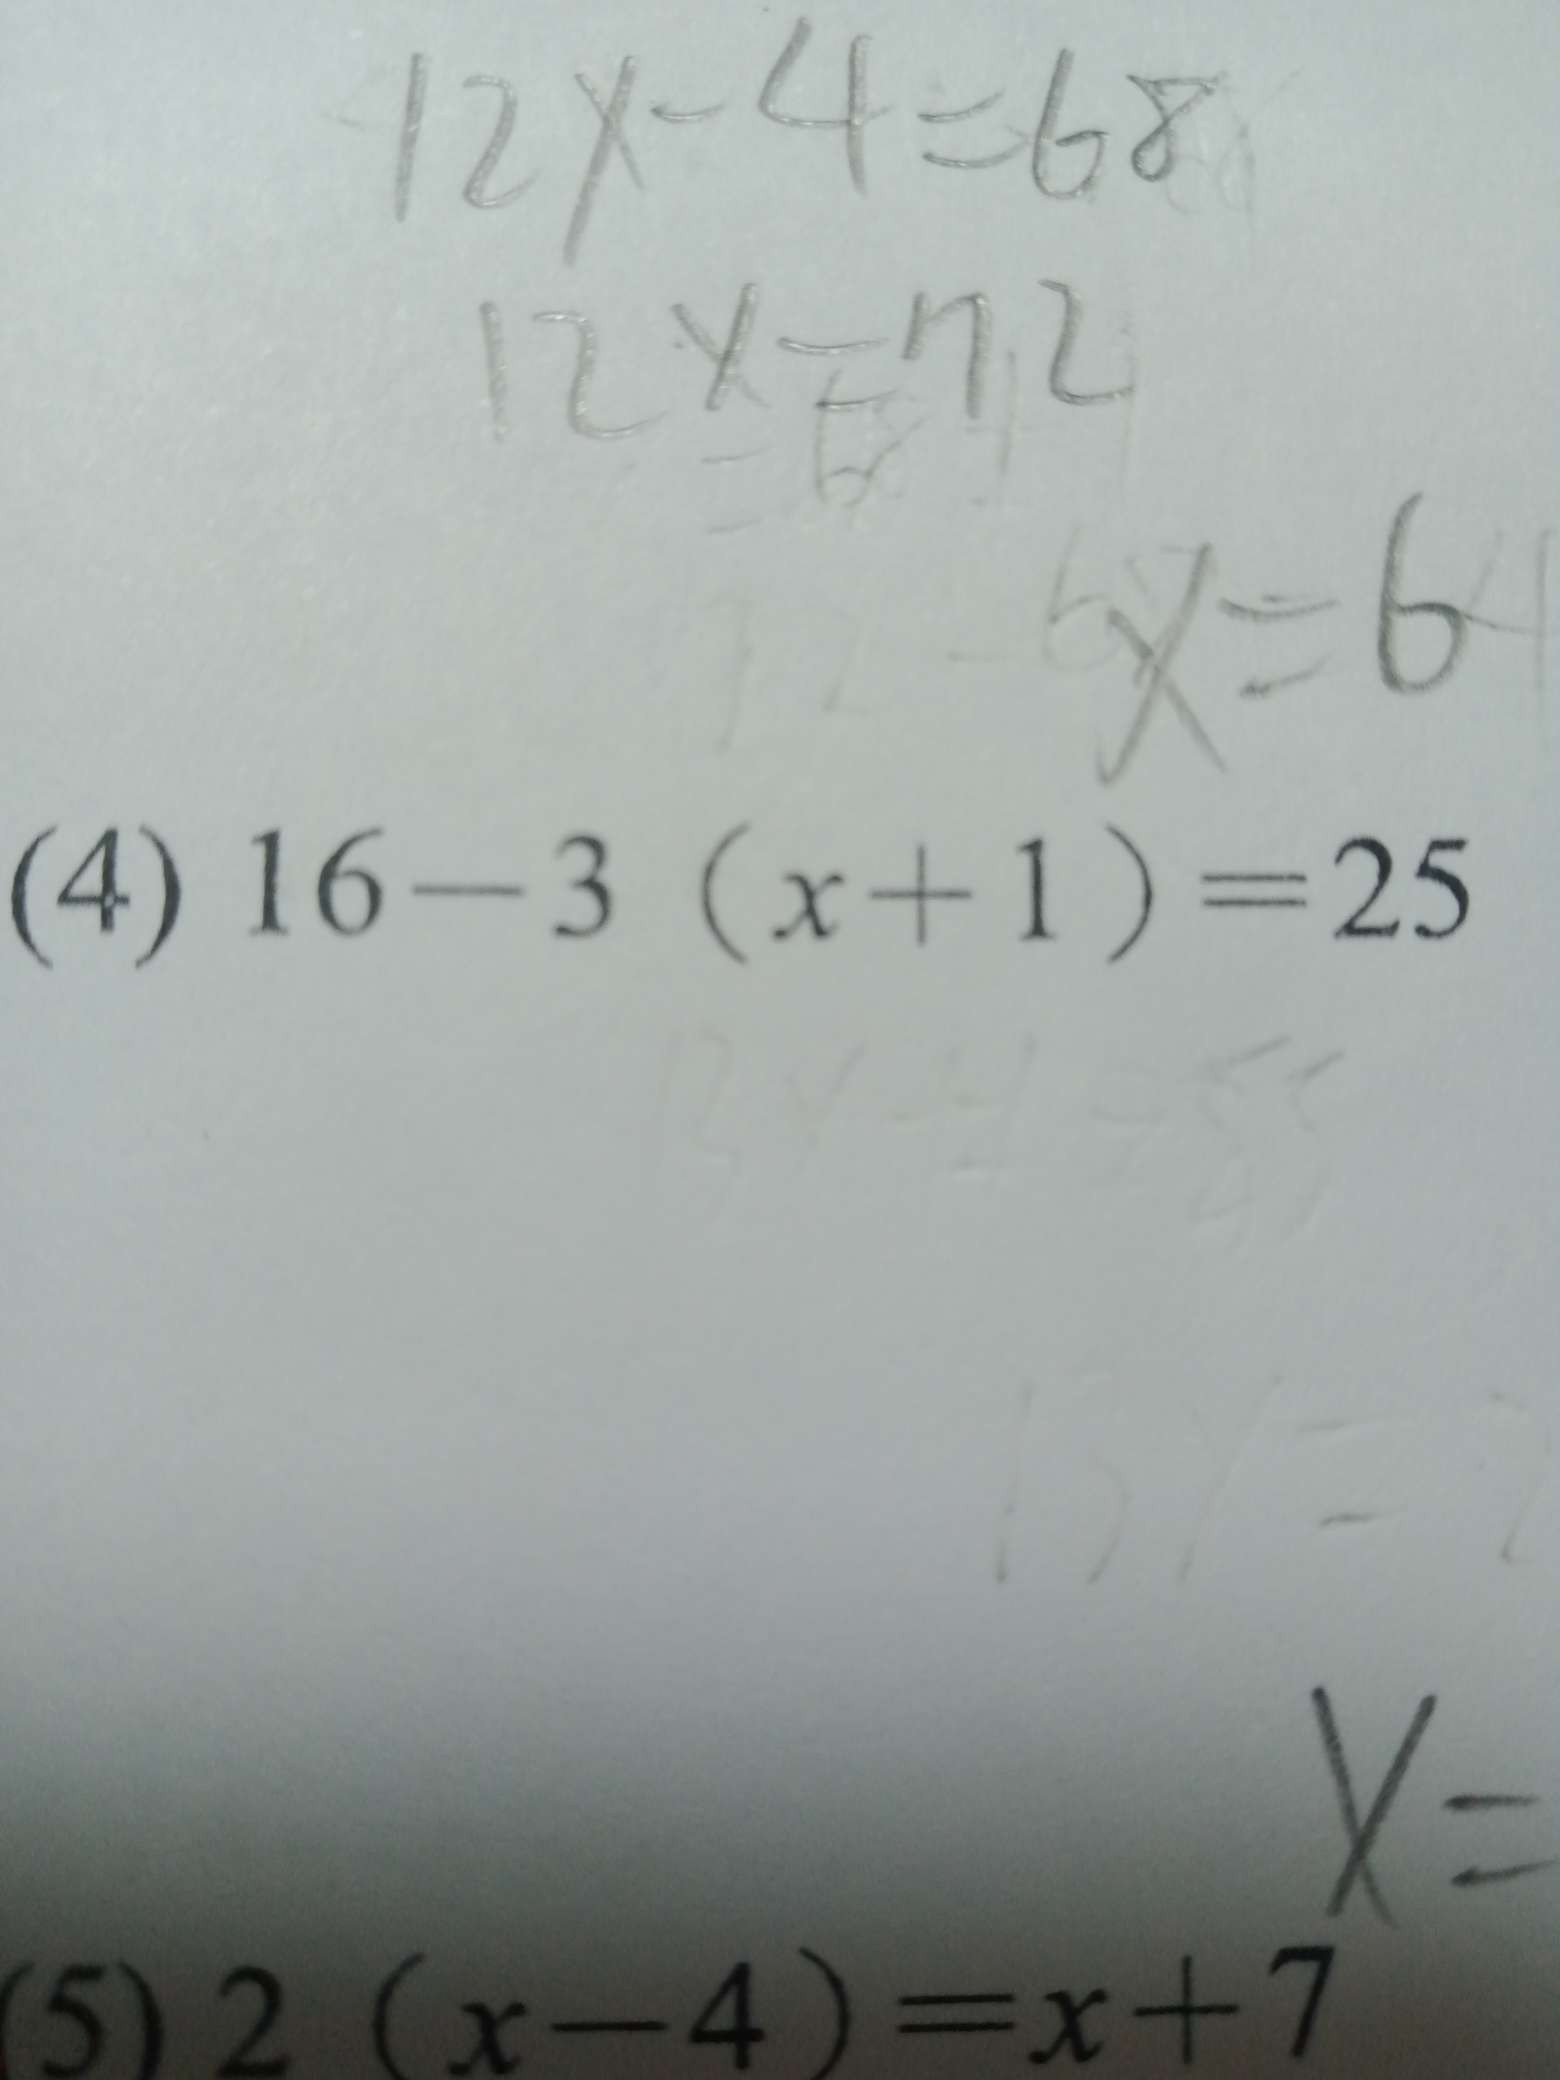 12x-4=68
12x=72
x=6
(4) 16-3（x+1）=25
x=
(5) 2（x-4）=x+7